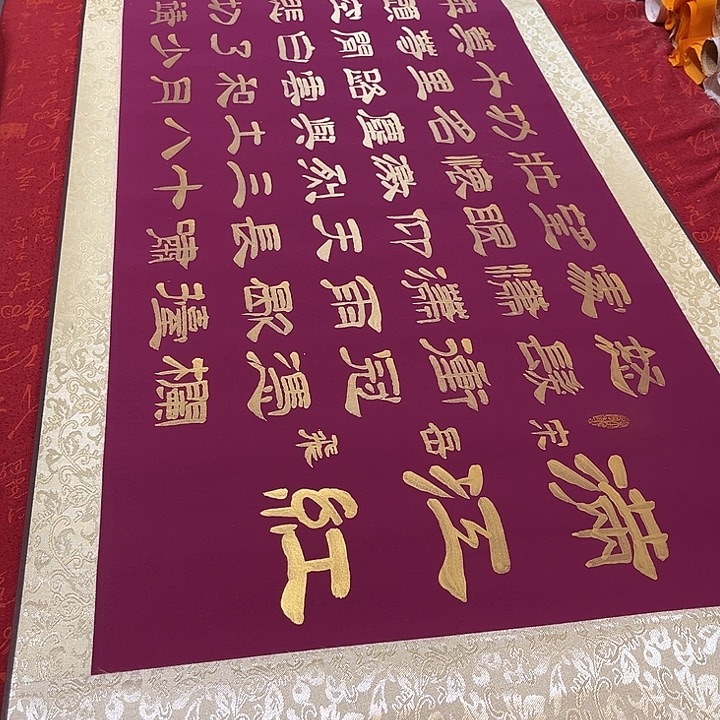 滿江紅
宋岳飛
怒髮衝冠憑欄
處瀟瀟雨歇擡
望眼仰天長嘯
壯懷激烈三十
功名塵與土八
千里路雲和月
莫等閒白了少
年頭空悲切靖